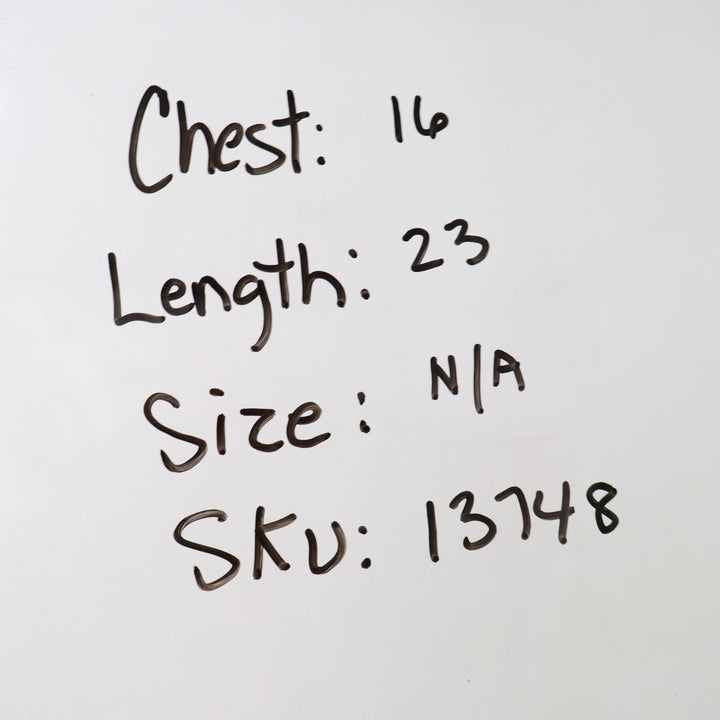 Chest: 16
Length: 23
Size: N/A
SKU: 13748